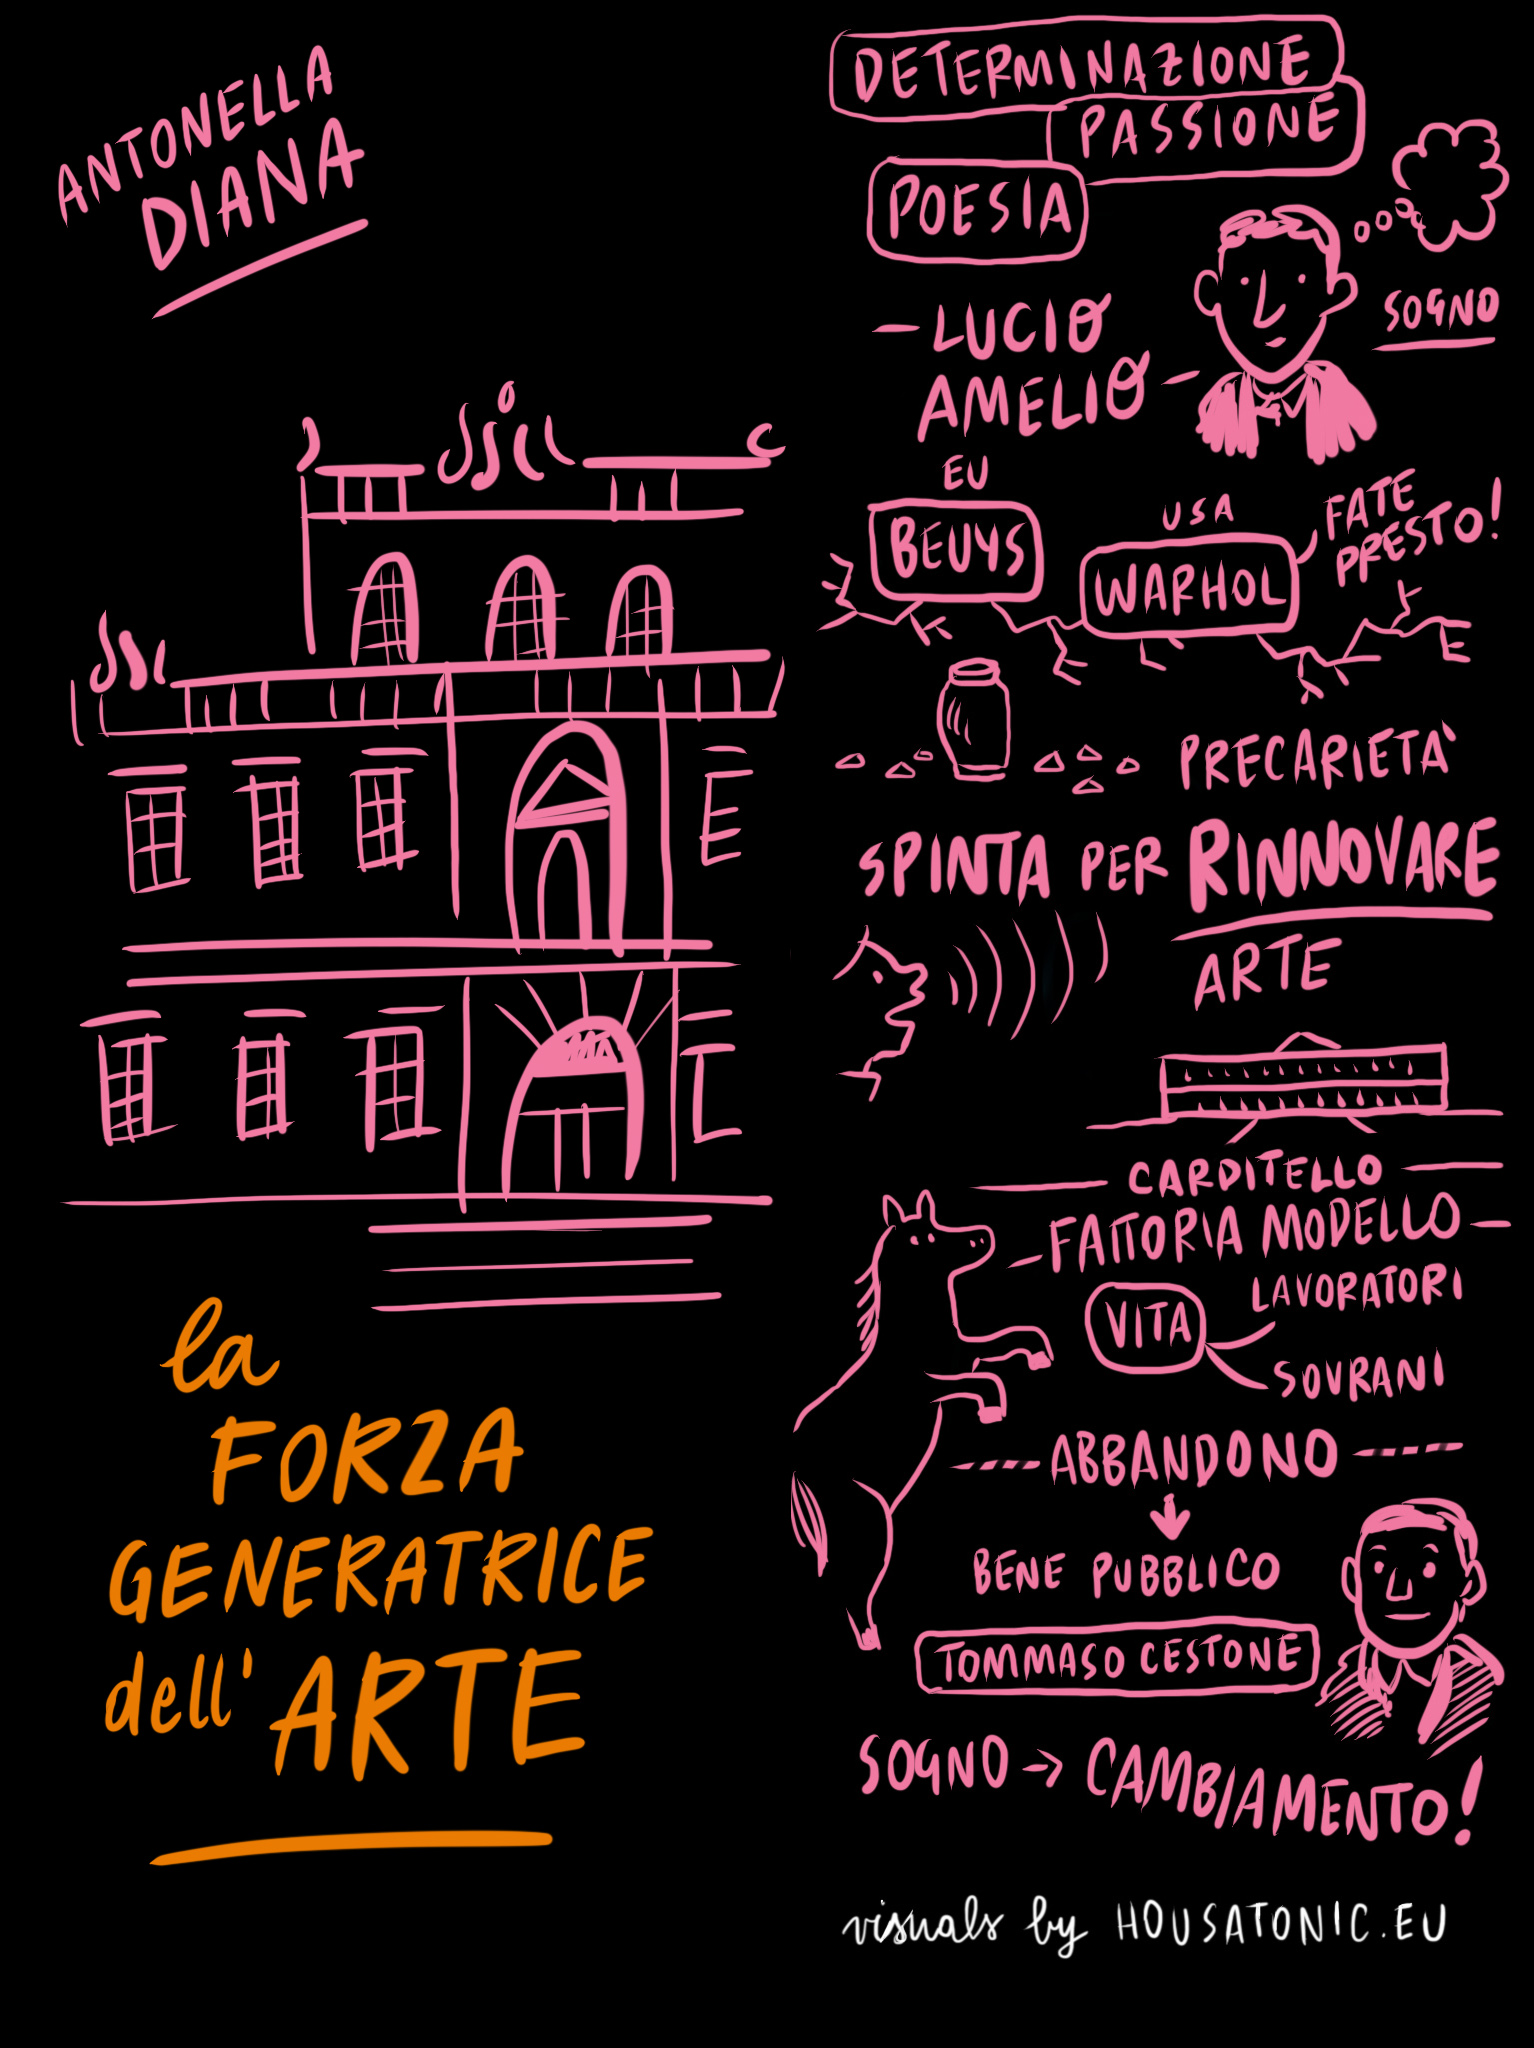 ANTONELLA
DIANA
la
FORZA
GENERATRICE
dell' ARTE
DETERMINAZIONE
PASSIONE
POESIA
SOGNO
- LUCIO
AMELIO -
EU
BEUYS
USA
WARHOL
FATE
PRESTO!
PRECARIETA'
SPINTA PER RINNOVARE
ARTE
CARDITELLO
- FATTORIA MODELLO -
VITA
LAVORATORI
SOVRANI
ABBANDONO
BENE PUBBLICO
TOMMASO CESTONE
SOGNO → CAMBIAMENTO!
visuals by HOUSATONIC.EU